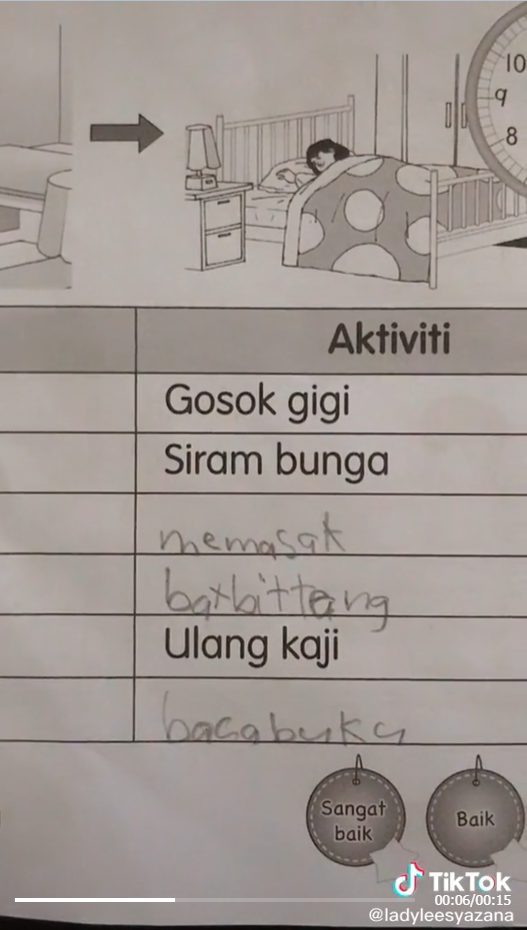 10
9
8
Aktiviti
Gosok gigi
Siram bunga
memasak
Ulang kaji
baca buku
Sangat
baik
Baik
TikTok
00:06/00:15
@ladyleesyazana